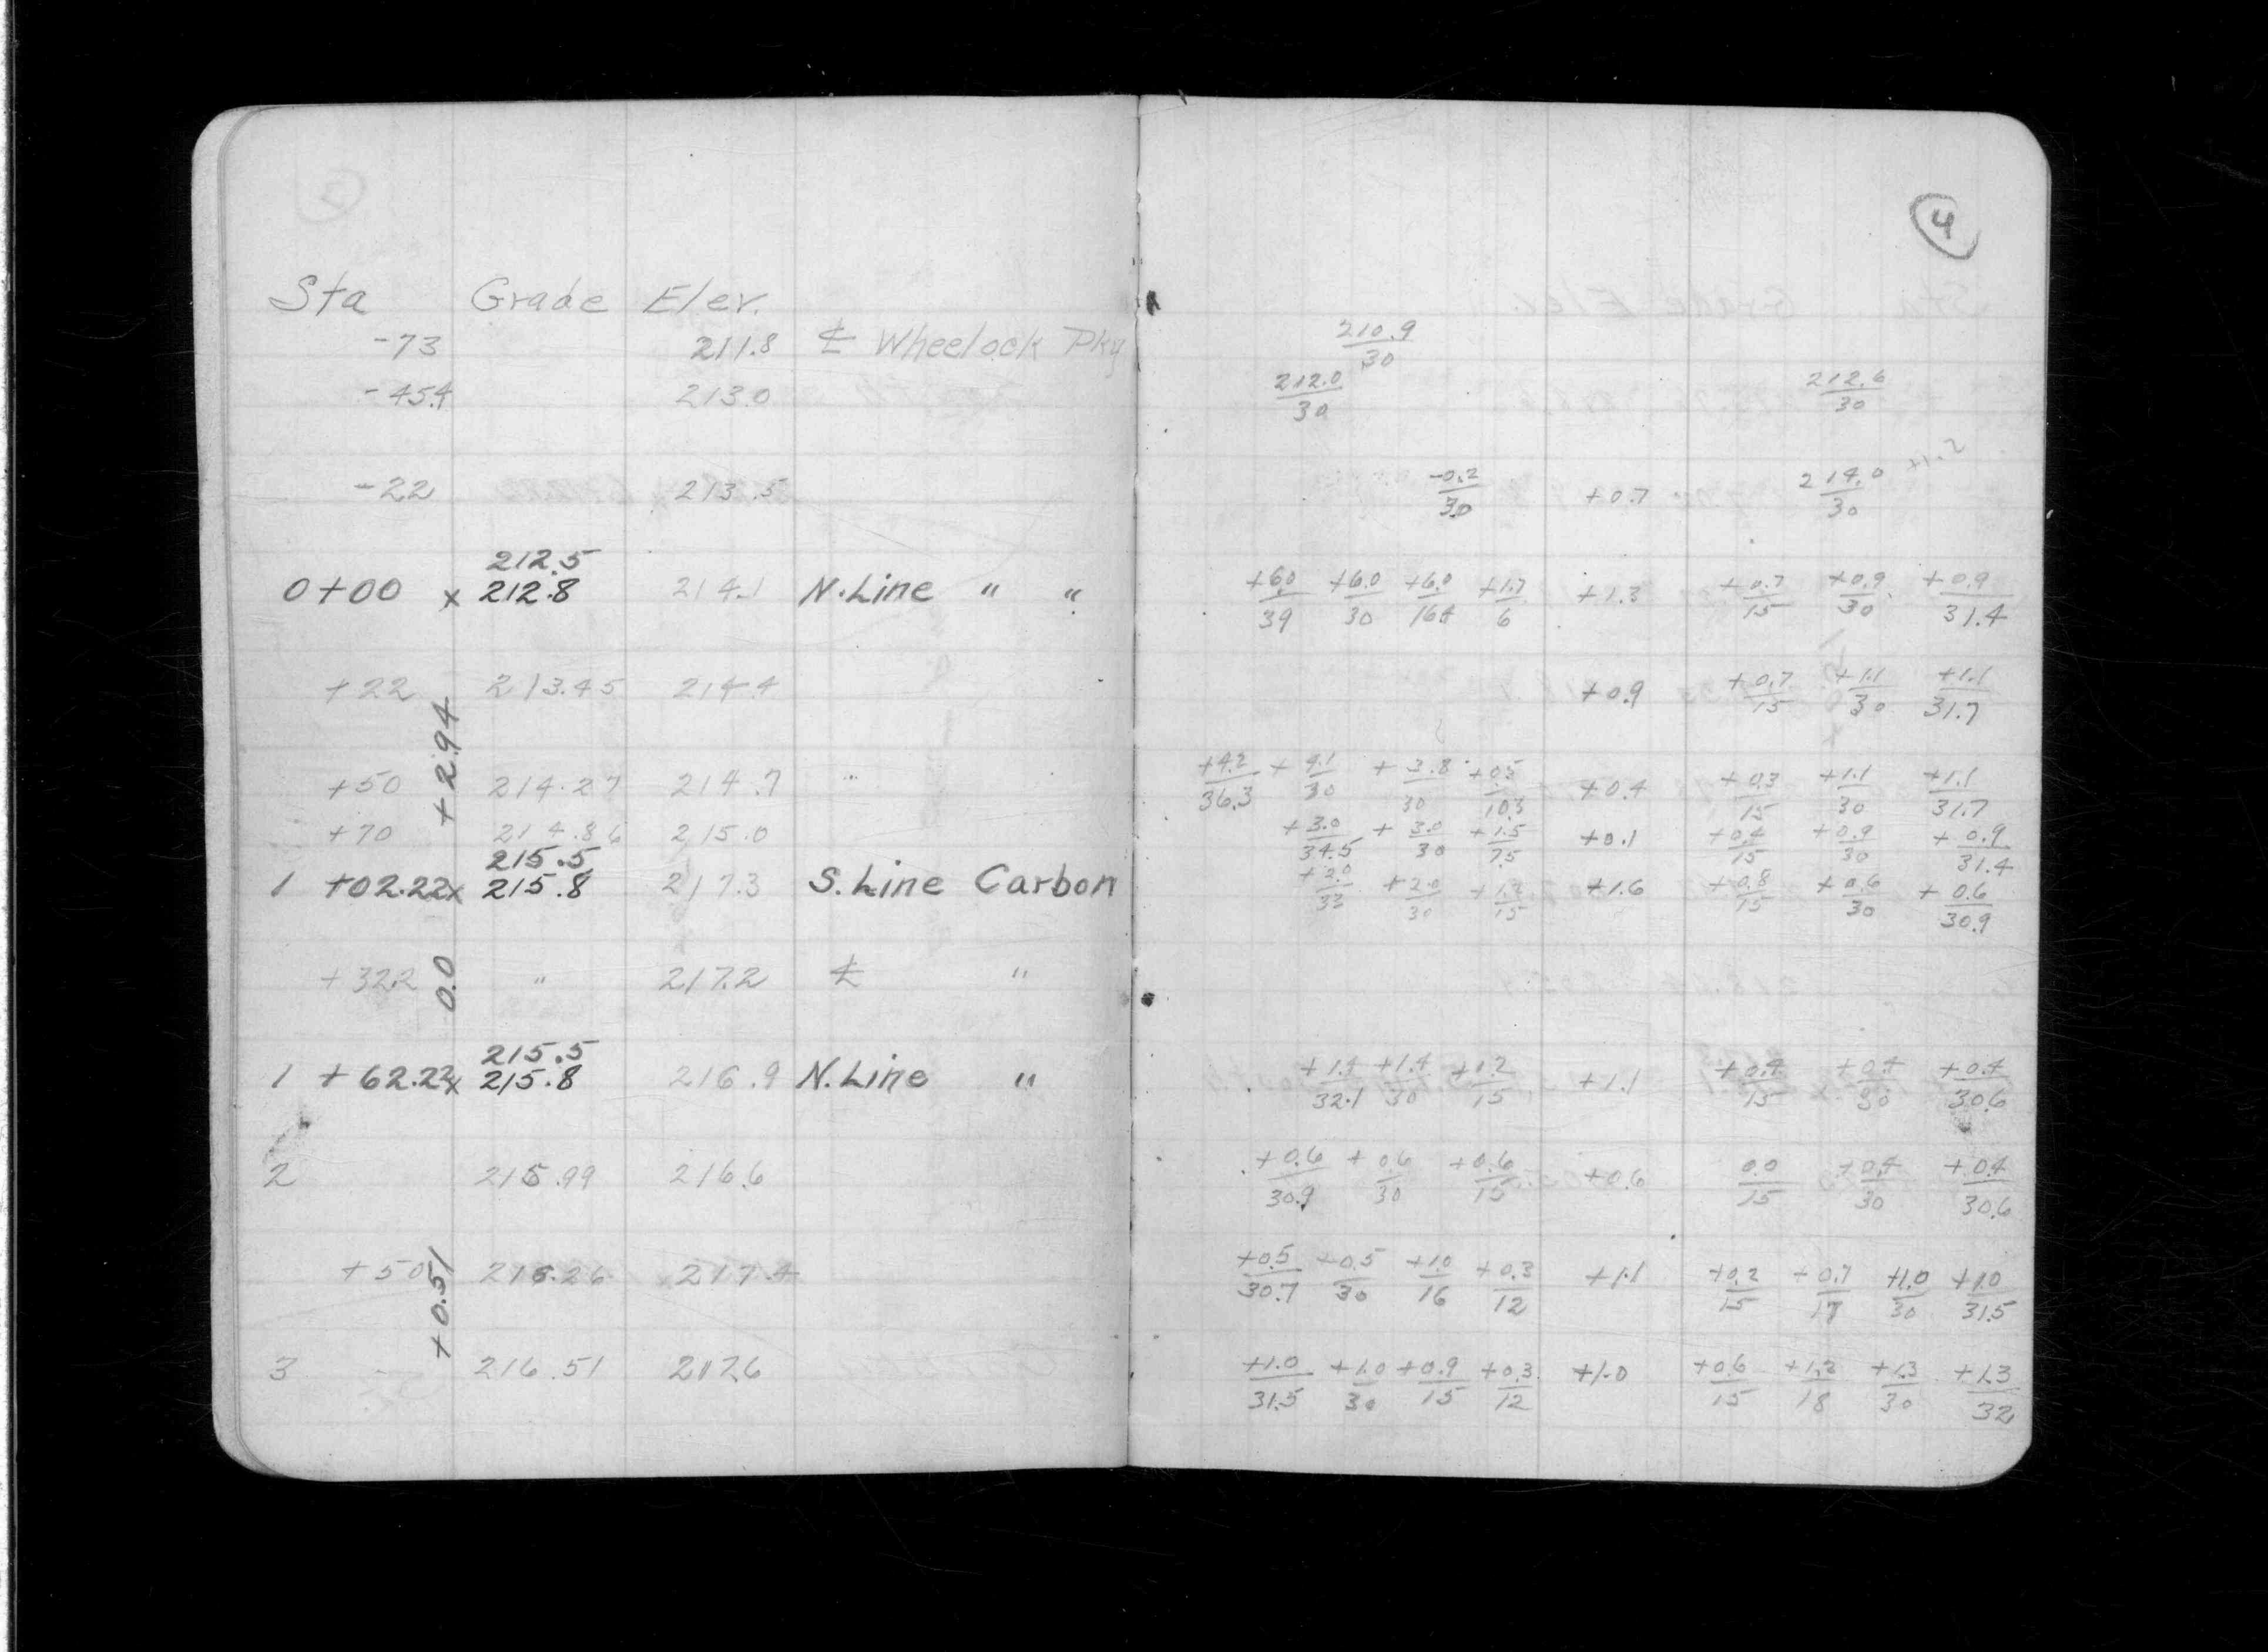 4
Sta Grade Elev.
-73 211.8 ℄ Wheelock Pky 210.9/30
-45.4 213.0 212.0/30 212.6/30
-22 213.5 -0.2/30 +0.7 214.0/30
212.5
0+00 x 212.8 214.1 N. Line " " +6.0/39 +6.0/30 +6.0/16 +1.7/6 +1.3 +0.7/15 +0.9/30 +0.9/31.4
+22 213.45 214.4 +0.9 +0.7/15 +1.1/30 +1.1/31.7
+2.94
+50 214.27 214.7 " +4.2/36.3 +4.1/30 +3.8/30 +0.5/10.3 +0.4 +0.3/15 +1.1/30 +1.1/31.7
+70 214.86 215.0 +3.0/34.5 +3.0/30 +1.5/7.5 +0.1 +0.4/15 +0.9/30 +0.9/31.4
215.5
1 +02.22x 215.8 217.3 S. Line Carbon +2.0/33 +2.0/30 +1.2/15 +1.6 +0.8/15 +0.6/30 +0.6/30.9
0.0
+32.2 " 217.2 ℄ "
215.5
1 +62.22x 215.8 216.9 N. Line " +1.4/32.1 +1.4/30 +1.2/15 +1.1 +0.4/15 +0.4/30 +0.4/30.6
2 215.99 216.6 +0.6/30.9 +0.6/30 +0.6/15 +0.6 0.0/15 +0.4/30 +0.4/30.6
+0.51
+50 216.26 217.4 +0.5/30.7 +0.5/30 +1.0/16 +0.3/12 +1.1 +0.2/15 +0.7/17 +1.0/30 +1.0/31.5
3 216.51 217.6 +1.0/31.5 +1.0/30 +0.9/15 +0.3/12 +1.0 +0.6/15 +1.2/18 +1.3/30 +1.3/32